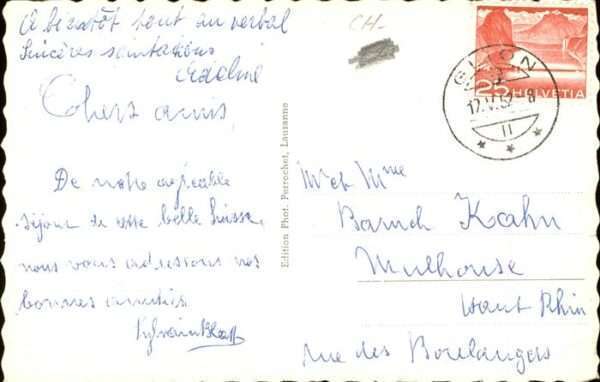 A bientôt tout au verbal
Sincères salutations
Adeline
Chers amis
De notre agréable
séjour de cette belle Suisse,
nous vous adressons nos
bonnes amitiés
Sylvain
Edition Phot. Perrochet, Lausanne
CH-
GLION
12.V.52-8
II
25 HELVETIA
M et Mme
Baruch Kahn
Mulhouse
Haut Rhin
rue des Boulangers